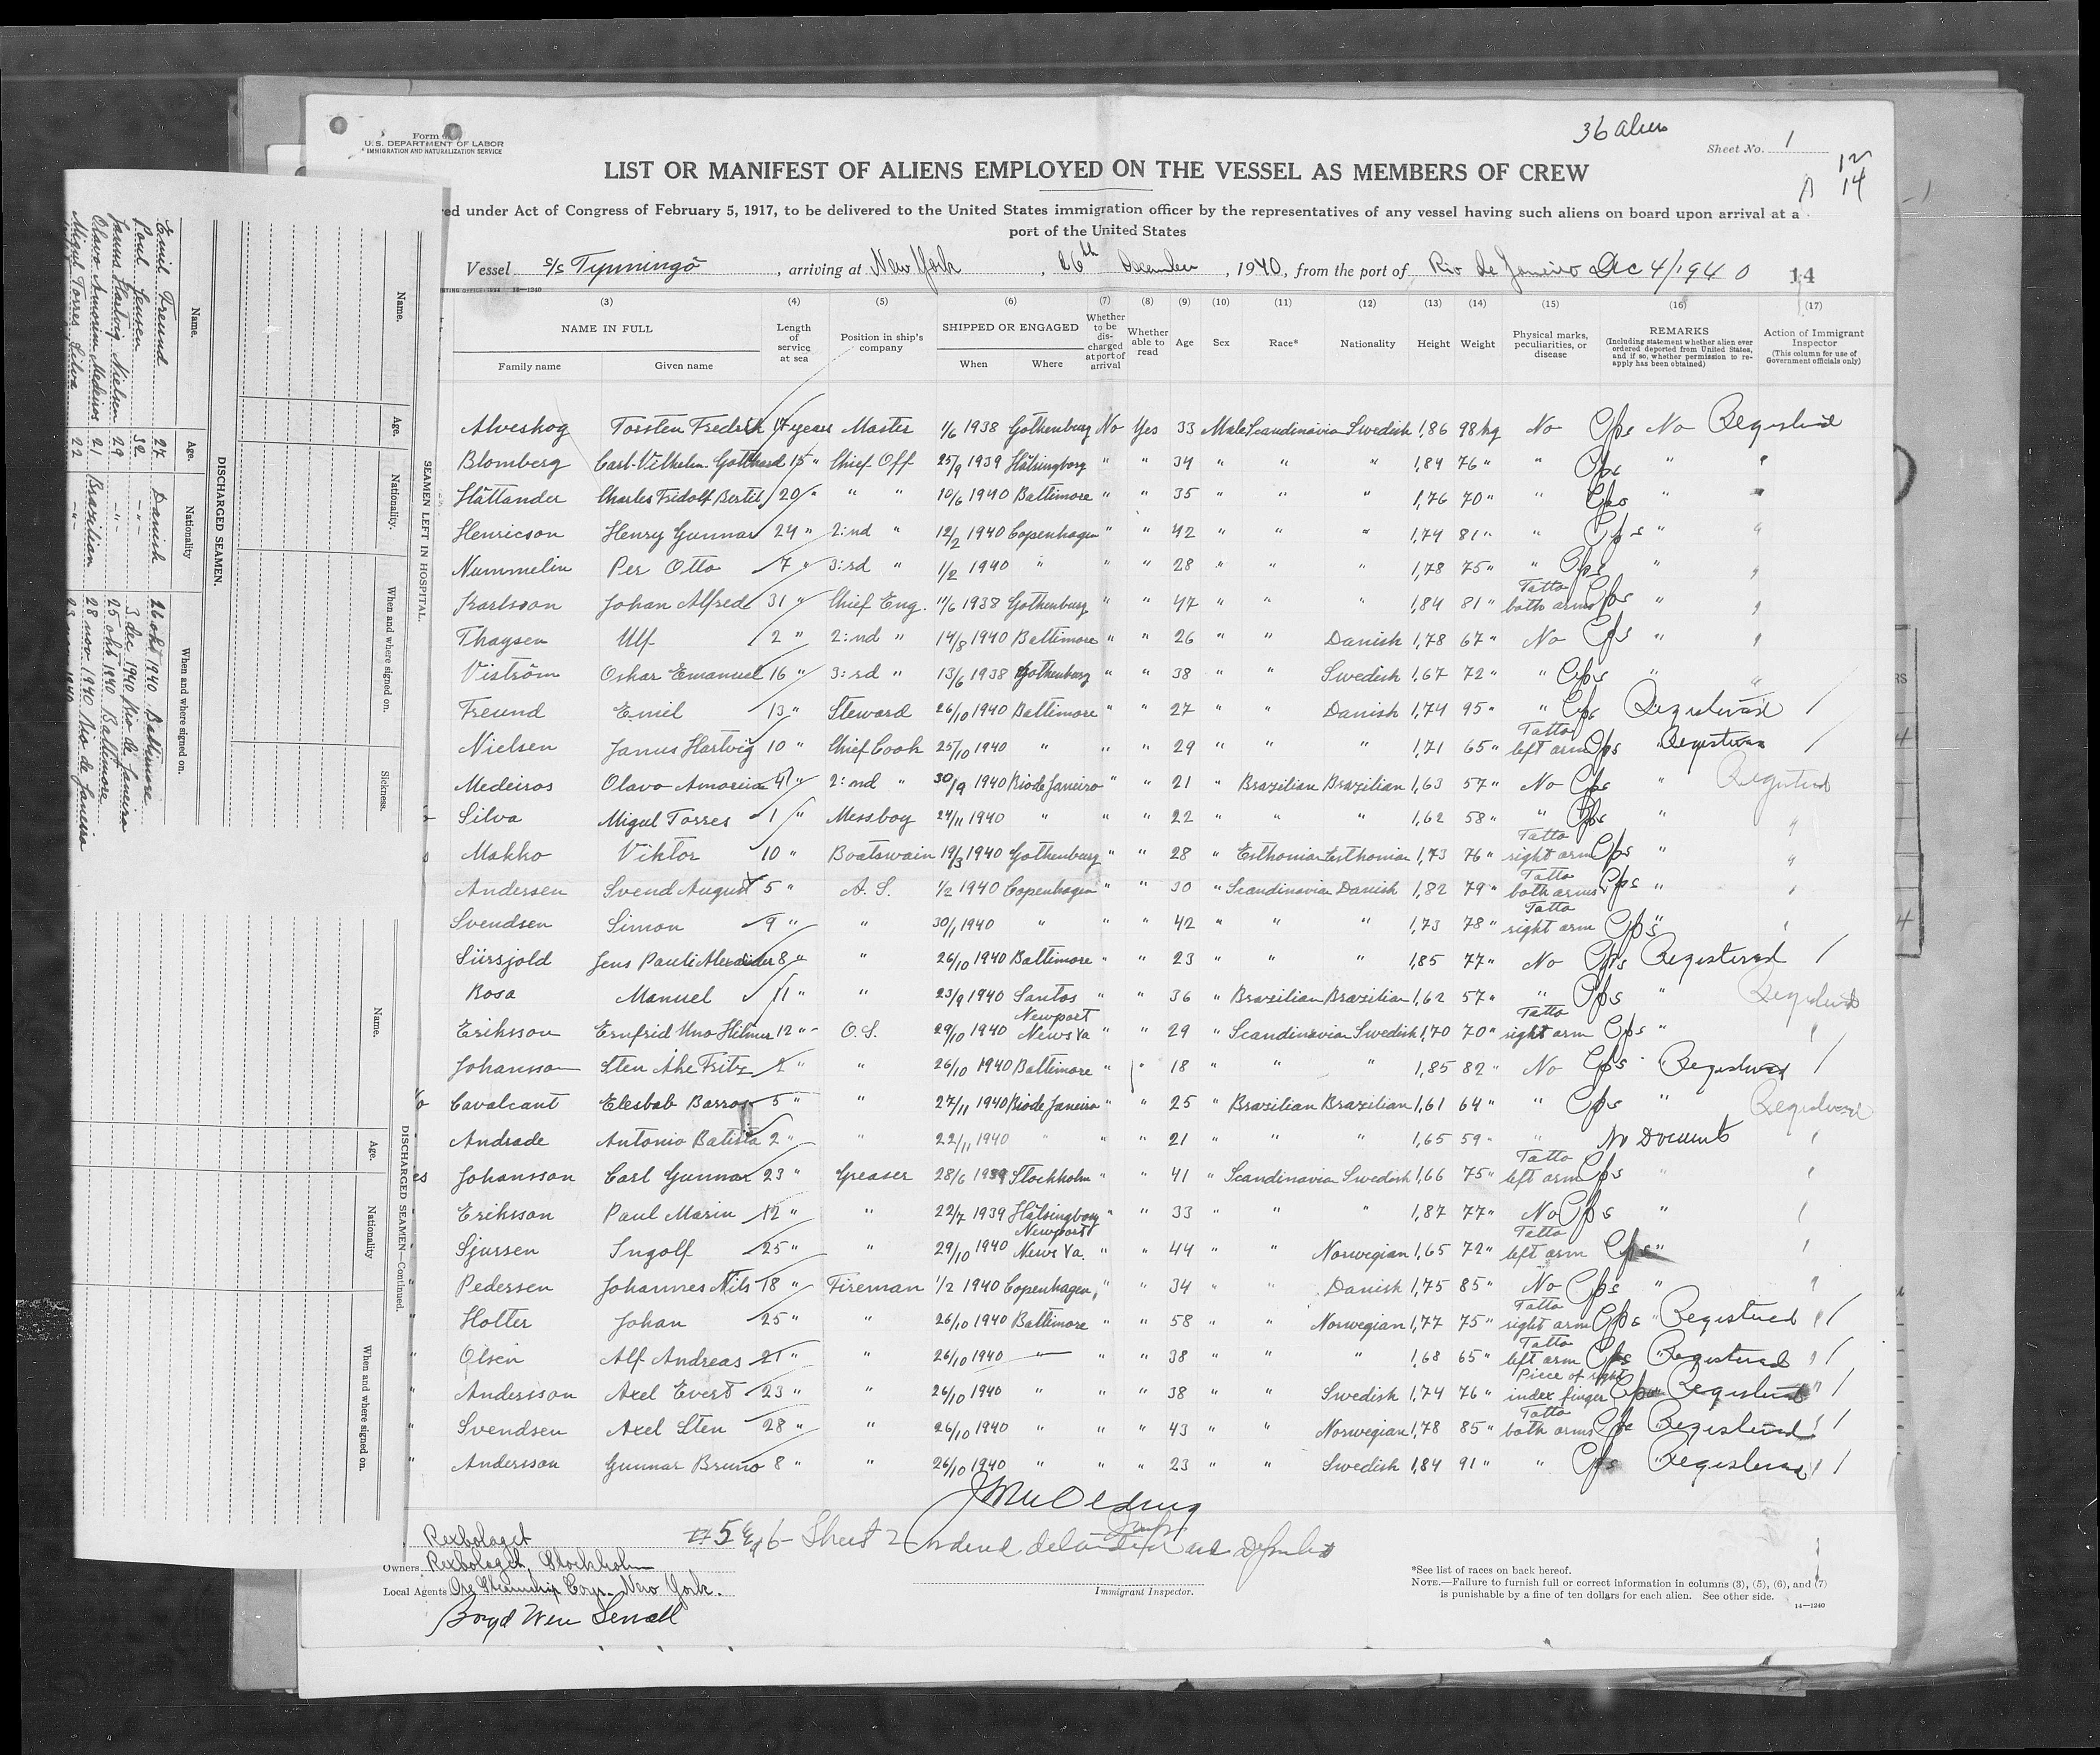 36 aliens
Form
U. S. DEPARTMENT OF LABOR
IMMIGRATION AND NATURALIZATION SERVICE
Sheet No. 1
12
14
LIST OR MANIFEST OF ALIENS EMPLOYED ON THE VESSEL AS MEMBERS OF CREW
ed under Act of Congress of February 5, 1917, to be delivered to the United States immigration officer by the representatives of any vessel having such aliens on board upon arrival at a
port of the United States
Vessel s/s Tynningö, arriving at New York, 26th December, 1940, from the port of Rio de Janeiro Dec 4/1940 14
(3) (4) (5) (6) (7) (8) (9) (10) (11) (12) (13) (14) (15) (16) (17)
NAME IN FULL Family name Given name Length of service at sea Position in ship's company SHIPPED OR ENGAGED When Where Whether to be discharged at port of arrival Whether able to read Age Sex Race* Nationality Height Weight Physical marks, peculiarities, or disease REMARKS (Including statement whether alien ever ordered deported from United States, and if so, whether permission to reapply has been obtained) Action of Immigrant Inspector (This column for use of Government officials only)
Alveskog Torsten Fredrik 17 years Master 1/6 1938 Gothenburg No Yes 33 Male Scandinavia Swedish 1,86 98 kg No Cps No Registered
Blomberg Carl-Vilhelm Gotthard 15 " Chief Off 25/9 1939 Hälsingborg " " 34 " " " 1,84 76 " " Cps " "
Hättander Charles Fridolf Bertil 20 " " " 10/6 1940 Baltimore " " 35 " " " 1,76 70 " " Cps " "
Henricson Henry Gunnar 24 " 2:nd " 12/2 1940 Copenhagen " " 42 " " " 1,74 81 " " Cps " "
Nummelin Per Otto 7 " 3:rd " 1/2 1940 " " " 28 " " " 1,78 75 " " Cps " "
Karlsson Johan Alfred 31 " Chief Eng. 11/6 1938 Gothenburg " " 47 " " " 1,84 81 " Tatto both arms Cps " "
Thaysen Ulf 2 " 2:nd " 14/8 1940 Baltimore " " 26 " " Danish 1,78 67 " No Cps " "
Viström Oskar Emanuel 16 " 3:rd " 13/6 1938 Gothenburg " " 38 " " Swedish 1,67 72 " " Cps " "
Freund Emil 13 " Steward 26/10 1940 Baltimore " " 27 " " Danish 1,74 95 " " Cps Registered /
Nielsen Janus Hartvig 10 " Chief Cook 25/10 1940 " " " 29 " " " 1,71 65 " Tatto left arm Cps " Registered /
Medeiros Olavo Amoreia 4 " 2:nd " 30/9 1940 Rio de Janeiro " " 21 " Brazilian Brazilian 1,63 57 " No Cps " Registered
Silva Migul Torres 1 " Messboy 24/11 1940 " " " 22 " " " 1,62 58 " " Cps " "
Makko Viktor 10 " Boatswain 19/3 1940 Gothenburg " " 28 " Esthonian Esthonian 1,73 76 " Tatto right arm Cps " "
Andersen Svend August 5 " A. S. 1/2 1940 Copenhagen " " 30 " Scandinavia Danish 1,82 79 " Tatto both arms Cps " "
Svendsen Simon 9 " " 30/1 1940 " " " 42 " " " 1,73 78 " Tatto right arm Cps " "
Siirsjold Jens Pauli Alexander 8 " " 26/10 1940 Baltimore " " 23 " " " 1,85 77 " No Cps Registered /
Rosa Manuel 11 " " 23/9 1940 Santos " " 36 " Brazilian Brazilian 1,62 57 " " Cps " Registered
Eriksson Ernfrid Uno Hilmer 12 " O. S. 29/10 1940 Newport News Va " " 29 " Scandinavia Swedish 1,70 70 " Tatto right arm Cps " "
Johansson Sten Åke Fritz 2 " " 26/10 1940 Baltimore " " 18 " " " 1,85 82 " No Cps " Registered /
Cavalcant Elesbab Barros 5 " " 27/11 1940 Rio de Janeiro " " 25 " Brazilian Brazilian 1,61 64 " " Cps " Registered
Andrade Antonio Batista 2 " " 22/11 1940 " " " 21 " " " 1,65 59 " " No Documents "
Johansson Carl Gunnar 23 " Greaser 28/6 1939 Stockholm " " 41 " Scandinavia Swedish 1,66 75 " Tatto left arm Cps " "
Eriksson Paul Marin 12 " " 22/7 1939 Hälsingborg " " 33 " " " 1,87 77 " No Cps " "
Sjursen Ingolf 25 " " 29/10 1940 Newport News Va. " " 44 " " Norwegian 1,65 72 " Tatto left arm Cps " "
Pedersen Johannes Nils 18 " Fireman 1/2 1940 Copenhagen " " 34 " " Danish 1,75 85 " No Cps " "
Holter Johan 25 " " 26/10 1940 Baltimore " " 58 " " Norwegian 1,77 75 " Tatto right arm Cps " Registered " /
Olsen Alf Andreas 21 " " 26/10 1940 " " " 38 " " " 1,68 65 " Tatto left arm Cps " Registered " /
Andersson Axel Evert 23 " " 26/10 1940 " " " 38 " " Swedish 1,74 76 " Piece of right index finger Cps " Registered " /
Svendsen Axel Sten 28 " " 26/10 1940 " " " 43 " " Norwegian 1,78 85 " Tatto both arms Cps " Registered " /
Andersson Gunnar Bruno 8 " " 26/10 1940 " " " 23 " " Swedish 1,84 91 " " Cps " Registered " /
#5 & 6 - Sheet 2 ordered detained
Rexbolaget
Owners Rexbolaget, Stockholm
Local Agents Ore Steamship Corp. New York.
Immigrant Inspector.
*See list of races on back hereof.
NOTE.—Failure to furnish full or correct information in columns (3), (5), (6), and (7)
is punishable by a fine of ten dollars for each alien. See other side.
14—1240
SEAMEN LEFT IN HOSPITAL.
Name. Age. Nationality. When and where signed on. Sickness.
DISCHARGED SEAMEN.
Name. Age. Nationality When and where signed on.
Emil Freund 27 Danish 26 okt 1940 Baltimore
Poul Jensen 32 -"- 3 dec. 1940 Rio de Janeiro
Janus Hartvig Nielsen 29 -"- 25 okt 1940 Baltimore
Olavo Amorim Medeiros 21 Brazilian 28 nov 1940 Rio de Janeiro
Migul Torres Silva 22 -"-
DISCHARGED SEAMEN—Continued.
Name. Age. Nationality When and where signed on.